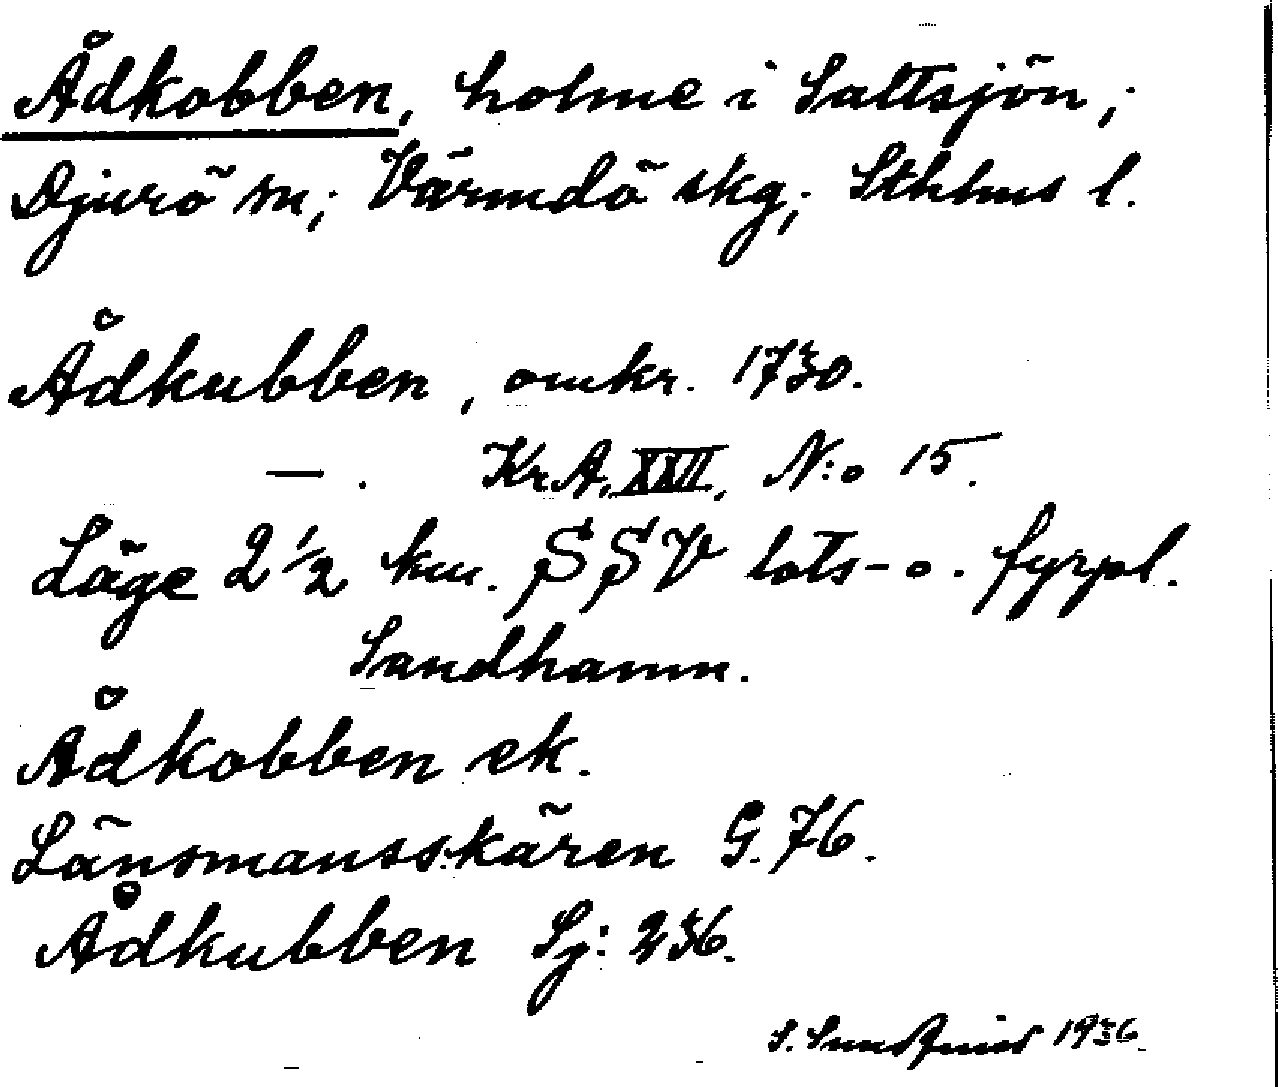 Ådkobben, holme i Saltsjön;
Djurö sn; Värmdö skg; Sthlms l.
Ådkubben, omkr. 1730.
— . Kr.A. XXII, N:o 15.
Läge 2 1/2 km. SSV lots- o. fyrpl.
Sandhamn.
Ådkobben ek.
Länsmansskären G. 76.
Ådkubben Sj: 236.
S. 1936